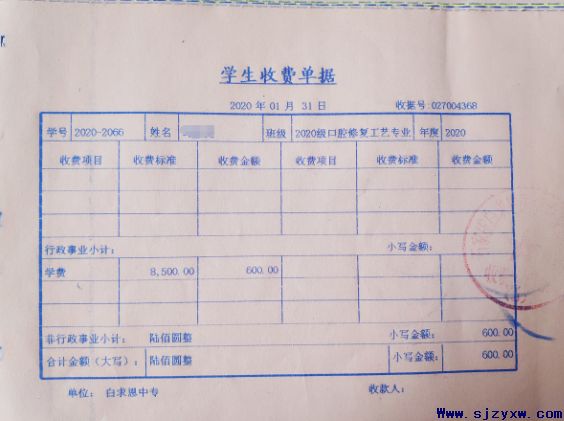 学生收费单据
2020 年 01 月 31 日 收据号:027004368
学号 2020-2066 姓名 班级 2020级口腔修复工艺专业 年度 2020
收费项目 收费标准 收费金额 收费项目 收费标准 收费金额
行政事业小计: 小写金额:
学费 8,500.00 600.00
非行政事业小计: 陆佰圆整 小写金额: 600.00
合计金额（大写）: 陆佰圆整 小写金额: 600.00
单位: 白求恩中专 收款人:
Www.sjzyxw.com